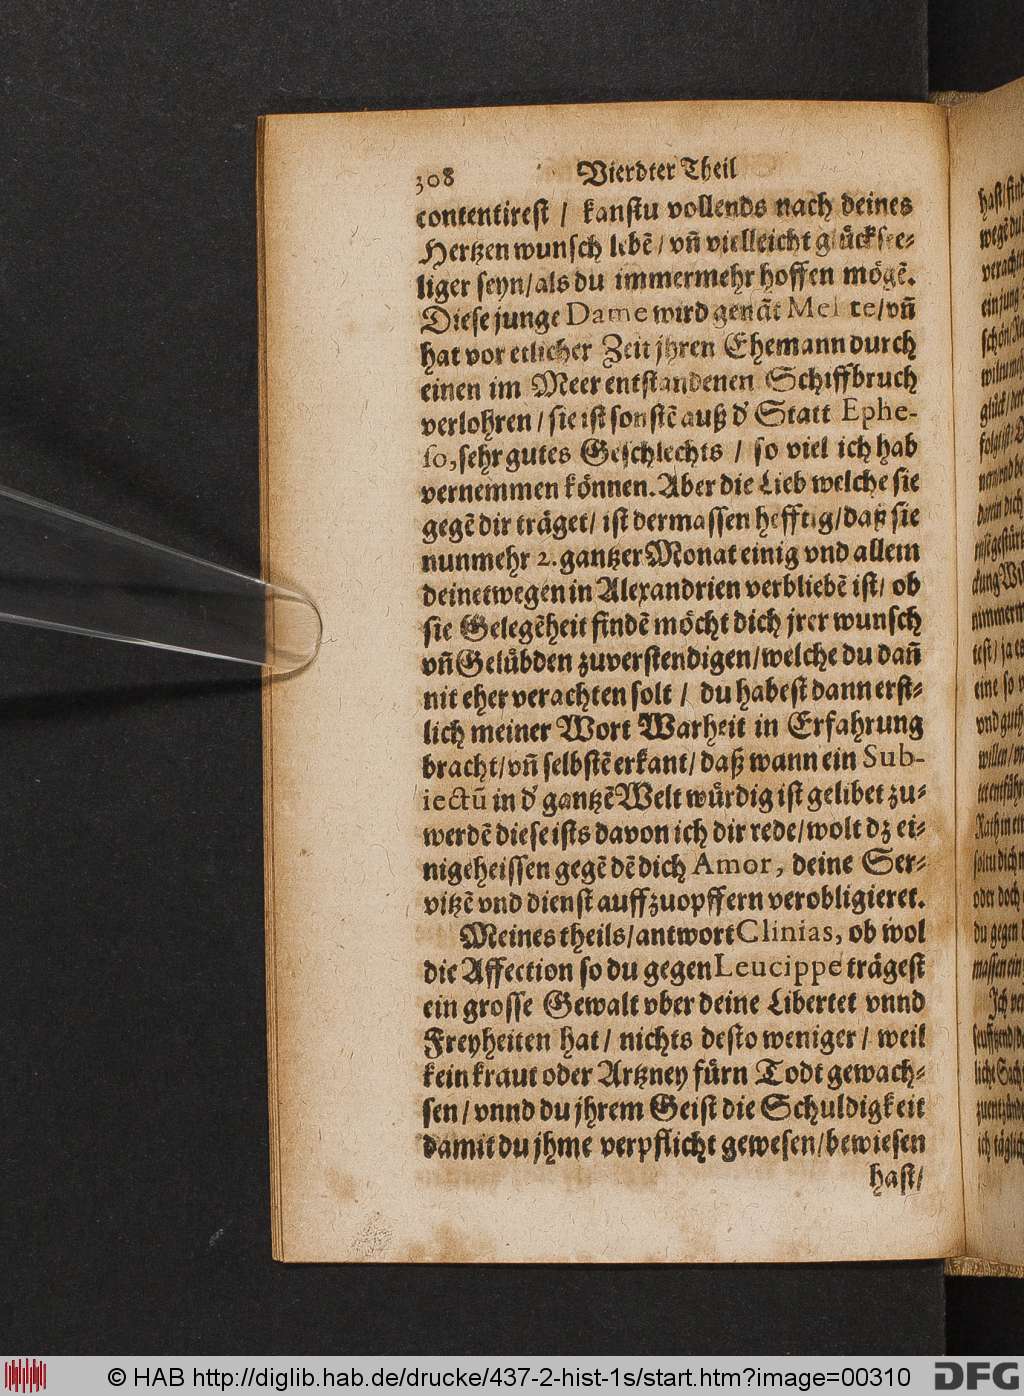 308 Vierdter Theil
contentirest / kanstu vollends nach deines
Hertzen wunsch lebẽ / vñ vielleicht glücksee-
liger seyn / als du immermehr hoffen mögẽ.
Diese junge Dame wird genãt Melite / vñ
hat vor etlicher Zeit jhren Ehemann durch
einen im Meer entstandenen Schiffbruch
verlohren / sie ist sonstẽ auß d' Statt Ephe-
so, sehr gutes Geschlechts / so viel ich hab
vernemmen können. Aber die Lieb welche sie
gegẽ dir träget / ist dermassen hefftig / daß sie
nunmehr 2. gantzer Monat einig vnd allem
deinetwegen in Alexandrien verbliebẽ ist / ob
sie Gelegẽheit findẽ möcht dich jrer wunsch
vñ Gelübden zuverstendigen / welche du dañ
nit eher verachten solt / du habest dann erst-
lich meiner Wort Warheit in Erfahrung
bracht / vñ selbstẽ erkant / daß wann ein Sub-
iectũ in d' gantzẽ Welt würdig ist gelibet zu-
werdẽ diese ists davon ich dir rede / wolt dz ei-
nige heissen gegẽ dẽ dich Amor, deine Ser-
vitzẽ vnd dienst auffzuopffern verobligieret.
Meines theils / antwort Clinias, ob wol
die Affection so du gegen Leucippe trägest
ein grosse Gewalt vber deine Libertet vnnd
Freyheiten hat / nichts desto weniger / weil
kein kraut oder Artzney fürn Todt gewach-
sen / vnnd du jhrem Geist die Schuldigkeit
damit du jhme verpflicht gewesen / bewiesen
hast /
© HAB http://diglib.hab.de/drucke/437-2-hist-1s/start.htm?image=00310
DFG